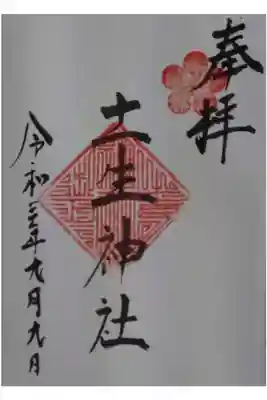 奉拝
土生神社
令和三年九月九日